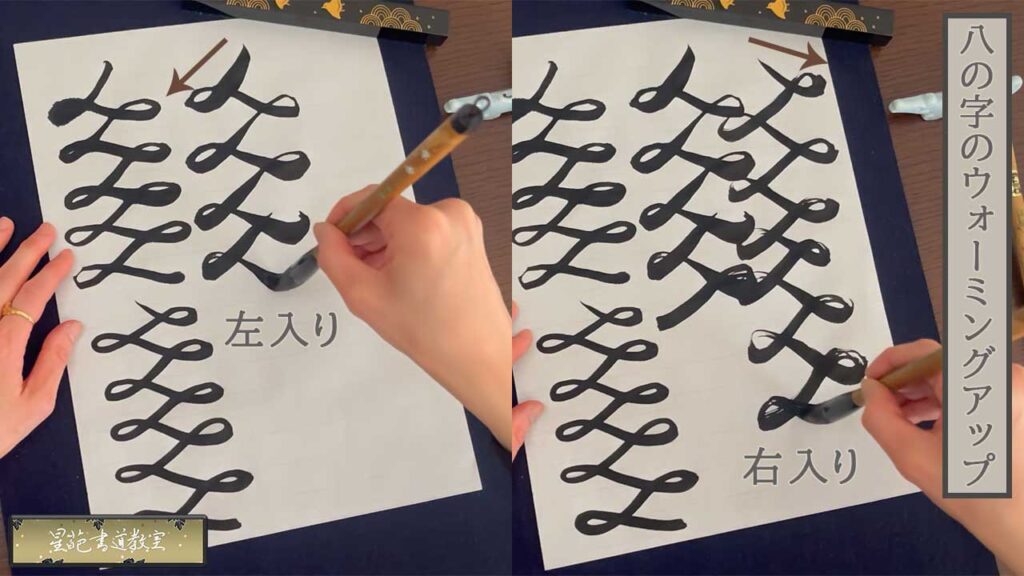 八の字のウォーミングアップ
左入り
右入り
書道教室